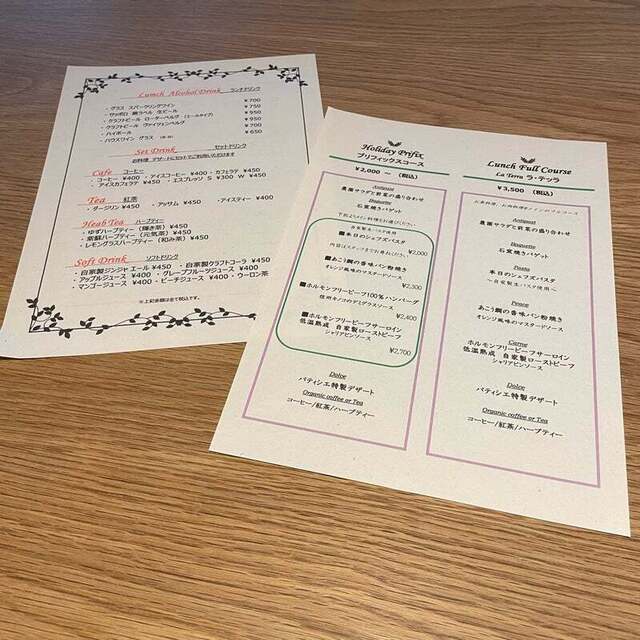 Lunch Alcohol Drink ランチドリンク
・グラス スパークリングワイン ¥700
・サッポロ 黒ラベル 生ビール ¥750
・クラフトビール ローターベルグ (エールタイプ) ¥950
・クラフトビール ヴァイツェンベルグ ¥950
・ハイボール ¥700
・ハウスワイン グラス ¥650
Set Drink セットドリンク
お料理 デザートにセットでご利用いただけます
Cafe コーヒー
・コーヒー ¥400 ・アイスコーヒー ¥400 ・カフェラテ ¥450
・アイスカフェラテ ¥450 ・エスプレッソ S ¥300 W ¥450
Tea 紅茶
・ダージリン ¥450 ・アッサム ¥450 ・アイスティー ¥400
Heab Tea ハーブティー
・ゆずハーブティー (輝き茶) ¥450
・紫蘇ハーブティー (元気茶) ¥450
・レモングラスハーブティー (和み茶) ¥450
Soft Drink ソフトドリンク
・自家製ジンジャエール ¥450 ・自家製クラフトコーラ ¥450
・アップルジュース ¥400 ・グレープフルーツジュース ¥400
・マンゴージュース ¥400 ・ピーチジュース ¥400 ・ウーロン茶
※上記金額は全て税込です。
Holiday Prifix
プリフィックスコース
¥2,000 ~ (税込)
Antipast
農園サラダと前菜の盛り合わせ
Baguette
石窯焼きバゲット
下記よりメイン料理をお選びください
自家製生パスタ使用
■本日のシェフズパスタ
¥2,000
内容はスタッフまでお尋ねください
■あこう鯛の香味パン粉焼き
オレンジ風味のマスタードソース
¥2,300
■ホルモンフリービーフ100%ハンバーグ
信州キノコのデミグラスソース
¥2,400
■ホルモンフリービーフサーロイン
低温熟成 自家製ローストビーフ
シャリアピンソース
¥2,700
Dolce
パティシエ特製デザート
Organic coffee or Tea
コーヒー/紅茶/ハーブティー
Lunch Full Course
La Terra ラ・テッラ
¥3,500 (税込)
Antipast
農園サラダと前菜の盛り合わせ
Baguette
石窯焼きバゲット
Pasta
本日のシェフズパスタ
~自家製生パスタ使用~
Pesce
あこう鯛の香味パン粉焼き
オレンジ風味のマスタードソース
Carne
ホルモンフリービーフサーロイン
低温熟成 自家製ローストビーフ
シャリアピンソース
Dolce
パティシエ特製デザート
Organic coffee or Tea
コーヒー/紅茶/ハーブティー